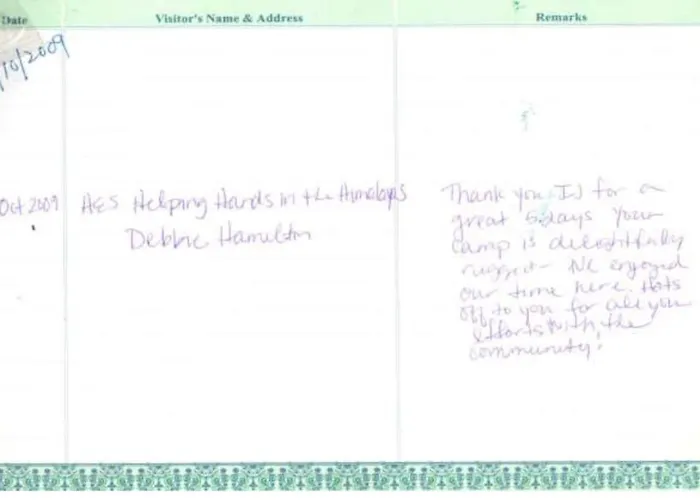 Date Visitor's Name & Address Remarks
/10/2009
Oct 2009 AES Helping Hands in the Himalayas
Debbie Hamilton
Thank you IJ for a
great 5 days your
camp is delightfully
We enjoyed
our time here. Hats
off to you for all you
efforts with the
community!